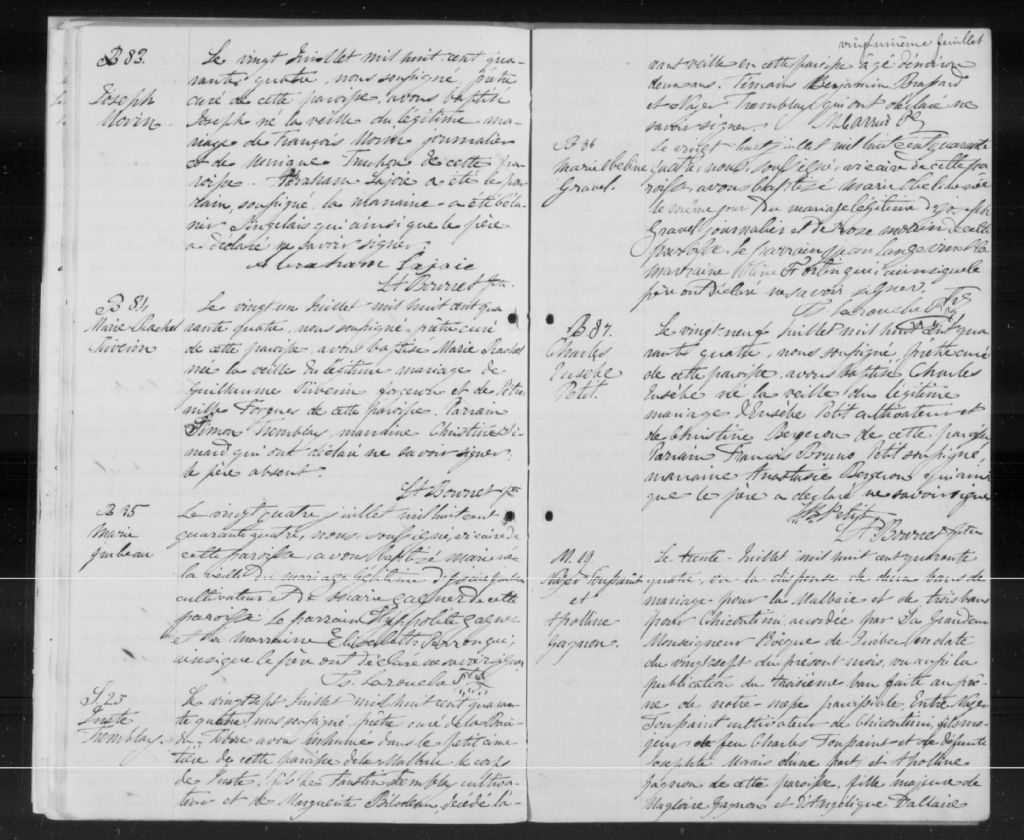 B 83.
Joseph
Morin.
Le vingt Juillet mil huit cent qua-
rante quatre, nous soussigné, prêtre
curé de cette paroisse, avons baptisé
Joseph né la veille du légitime ma-
riage de François Morin journalier
et de Monique Truchon de cette pa-
roisse. Abraham Lajoie a été le par-
rain, soussigné, la marraine a été
Singelais qui ainsi que le père
a déclaré ne savoir signer.
Abraham Lajoie
Bourret ptre
B 84
Marie Rachel
Riverin
Le vingt un Juillet mil huit cent qua-
rante quatre, nous soussigné, prêtre curé
de cette paroisse, avons baptisé Marie Rachel
née la veille du légitime mariage de
Guillaume Riverin forgeron et de Pétro-
nille Forgues de cette paroisse. Parrain
Simon Tremblay, marraine Christine Si-
mard qui ont déclaré ne savoir signer,
le père absent.
Bourret ptre
B 85
Marie
Le vingt quatre juillet mil huit cent
quarante quatre, nous, soussigné, vicaire de
cette paroisse, avons baptisé marie née
la veille du mariage légitime de
cultivateur et de marie gagner de cette
paroisse le parrain Hyppolite gagner
et la marraine Elisabeth
ainsi que le père ont déclaré ne savoir signer
Larouche Ptre
S 25
Juste
Tremblay.
Le vingt sept Juillet mil huit cent quaran-
te quatre, nous soussigné, prêtre curé de la
avons inhumé dans le petit cime-
tière de cette paroisse de la Malbaie le corps
de Juste, fils de Faustin Tremblay cultiva-
teur et de Marguerite Bilodeau, décédé l'a-
vingt neuvième feuillet
vant veille en cette paroisse âgé d'environ
deux ans. Témoins Benjamin Brassard
et Tremblay qui ont déclaré ne
savoir signer.
B 86
Gravel.
Le vingt huit juillet mil huit cent quarante
quatre, nous, soussigné, vicaire de cette pa-
roisse, avons baptisé marie née
le même jour du mariage légitime de Joseph
Gravel journalier et de Rose morin de cette
paroisse. le parrain jean
marraine Olive Fortin qui ainsi que le
père ont déclaré ne savoir signer.
Larouche Ptre
B 87.
Charles
Eusèbe
Petit.
Le vingt-neuf Juillet mil huit cent qua-
rante quatre, nous soussigné, prêtre curé
de cette paroisse, avons baptisé Charles
Eusèbe né la veille du légitime
mariage d'Eusèbe Petit cultivateur et
de Christine Bergeron de cette paroisse
Parrain François Bruno Petit soussigné,
marraine Anastasie Bergeron qui ainsi
que le père a déclaré ne savoir signer
Petit
Bourret ptre
M. 19.
Toussaint
et
Apolline
Gagnon.
Le trente Juillet mil huit cent quarante
quatre, vu la dispense de deux bans de
mariage pour la Malbaie et de trois bans
pour Chicoutimi, accordée par Sa Grandeur
Monseigneur l'évêque de Québec en date
du vingt sept du présent mois, vu aussi la
publication du troisième ban faite au prô-
ne de notre messe paroissiale, Entre
Toussaint cultivateur de Chicoutimi, fils ma-
jeur de feu Charles Toussaint et de défunte
Josephte Morais d'une part, et Apolline
Gagnon de cette paroisse, fille majeure de
Magloire Gagnon et d'Angélique Dallaire